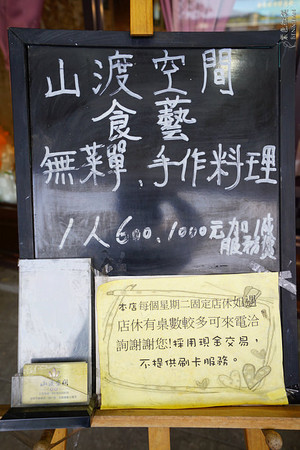 山渡空間
食藝
無菜單、手作料理
1人600、1000元加1成
服務費
本店每個星期二固定店休如遇
店休有桌數較多可來電洽
詢謝謝您!採用現金交易,
不提供刷卡服務。